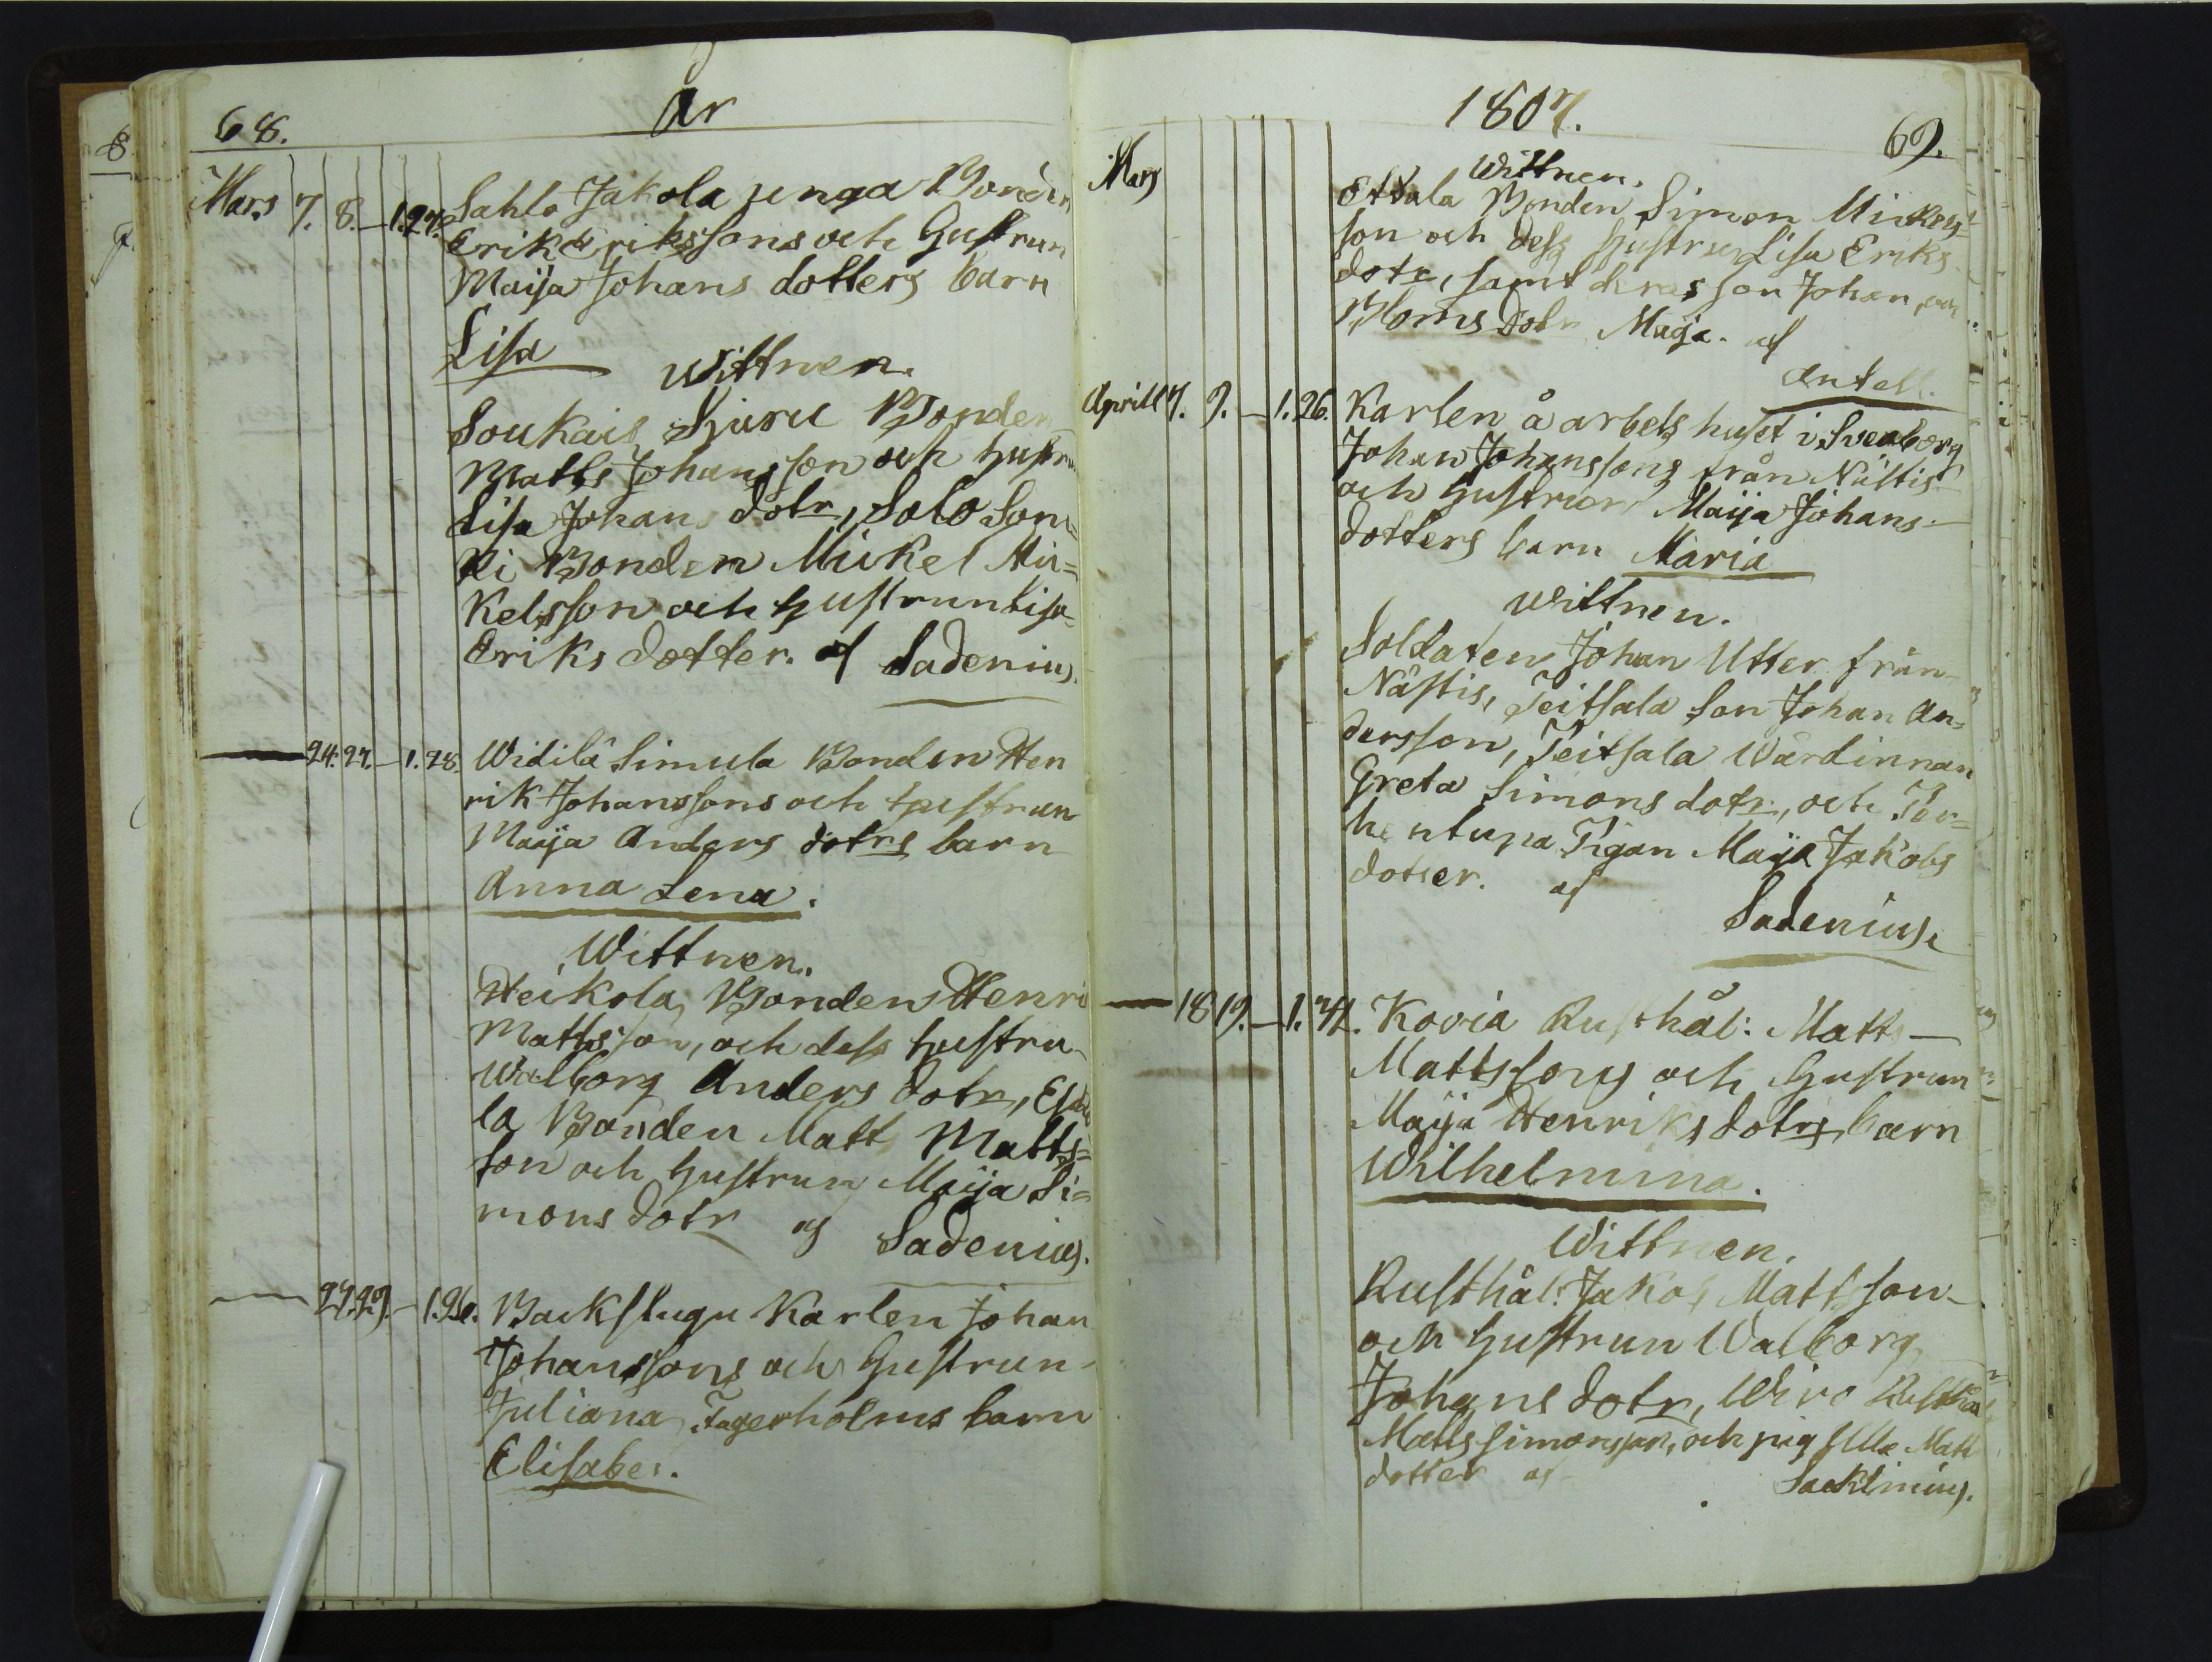 68.
År
Mars 7. 8. — 1. 27. Sahlo Jakola unga Bonden
Erik Erikssons och Hustrun
Maija Johans dotters barn
Lisa
Wittnen.
Soukais Sjuru Bonden
Matts Johansson och hustru
Lisa Johans dotr, Solo Son=
ki Bonden Mickel Mic=
kelsson och hustrun Lisa
Eriks dotter. af Sadenius.
— 24. 27. — 1. 28. Widilä Simula Bonden Hen
rik Johanssons och hustrun
Maija Anders dotrs barn
Anna Lena.
Wittnen.
Heikola Bonden Henri
Mattsson, och dess hustru
Walborg Anders dotr,
la Bonden Matts Matts=
son och hustrun Maija Si=
mons dotr af Sadenius.
— 27. 29. — Backstugu Karlen Johan
Johanssons och Hustrun
Juliana Fagerholms barn
Elisabet.
1807.
69.
Mars
Wittnen.
Ettala Bonden Simon Mickels=
son och dess hustru Lisa Eriks
dotr, samt deras son Johan, och
Bloms dotr Maija. af
Antell.
Aprill 7. 9. — 1. 26. Karlen å arbets huset i Sveaborg
Johan Johanssons från Nästis
och hustrun Maija Johans
dotters barn Maria
Wittnen.
Soldaten Johan Utter från
Nästis, Teitsala son Johan An=
dersson, Teitsala Wärdinnan
Greta Simons dotr, och Per=
hentupa Pigan Maija Jakobs
dotter. af
Sadenius.
— 18 19. — 1. Kovia Rusthål: Matts
Mattssons och Hustrun
Maija Henriks dotrs barn
Wilhelmina.
Wittnen.
Rusthål: Jakob Mattsson
och hustrun Walborg
Johans dotr, Wiro Rusthål
Matts Simonsson, och pig Ulla Matts
dotter af